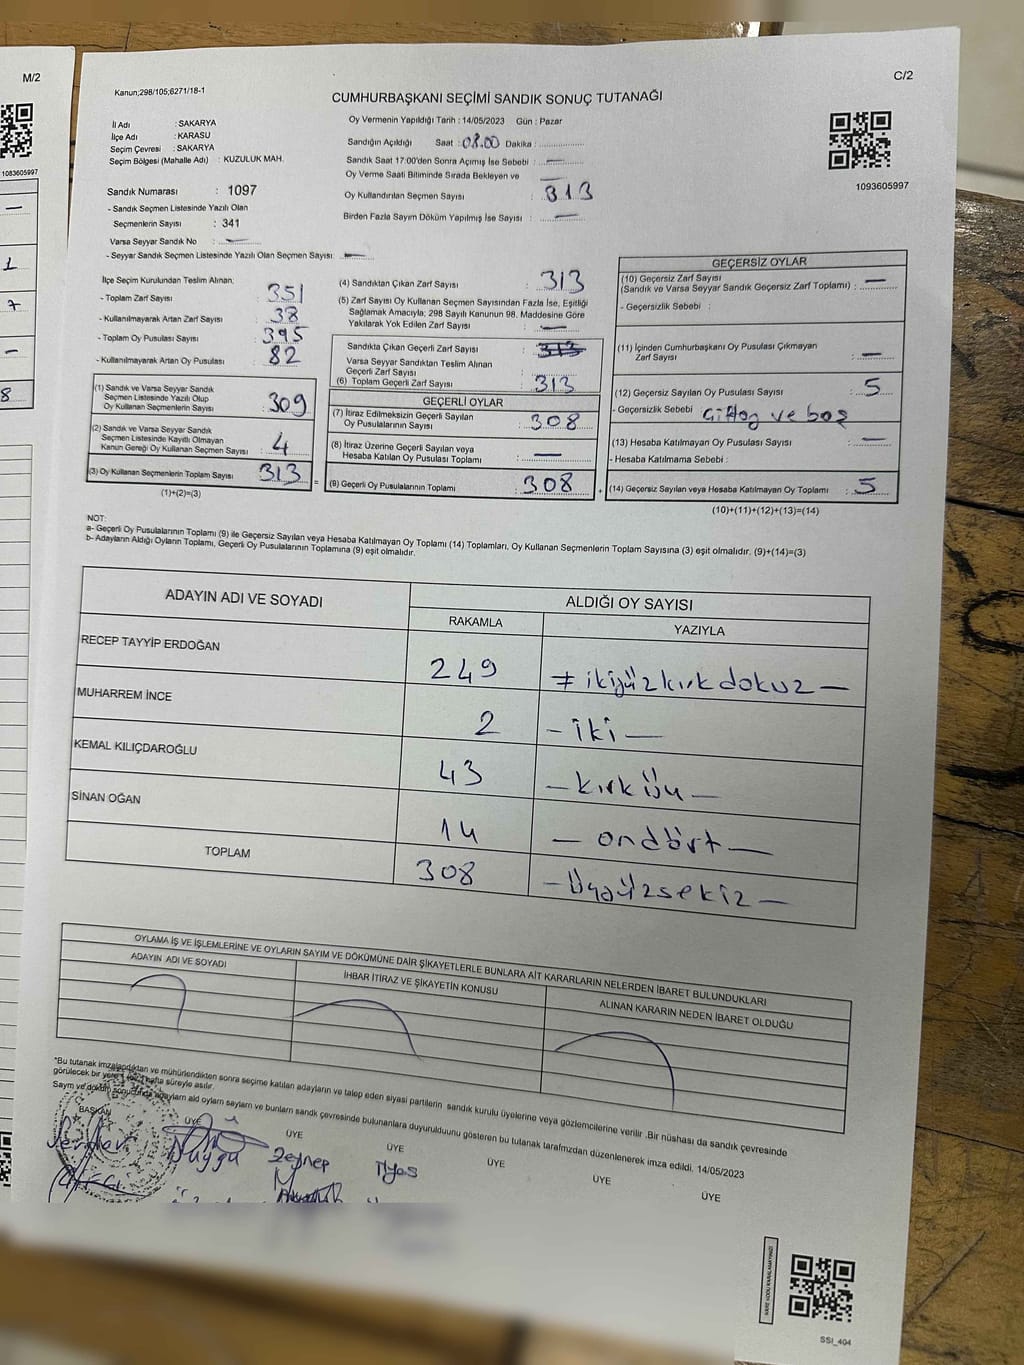 M/2
1083605997
1
7
8
C/2
Kanun;298/105;6271/18-1
CUMHURBAŞKANI SEÇİMİ SANDIK SONUÇ TUTANAĞI
1093605997
İl Adı : SAKARYA
İlçe Adı : KARASU
Seçim Çevresi : SAKARYA
Seçim Bölgesi (Mahalle Adı) : KUZULUK MAH.
Sandık Numarası : 1097
- Sandık Seçmen Listesinde Yazılı Olan
Seçmenlerin Sayısı : 341
Varsa Seyyar Sandık No : —
- Seyyar Sandık Seçmen Listesinde Yazılı Olan Seçmen Sayısı: —
Oy Vermenin Yapıldığı Tarih : 14/05/2023 Gün : Pazar
Sandığın Açıldığı Saat : 08.00 Dakika :
Sandık Saat 17:00'den Sonra Açımış İse Sebebi : —
Oy Verme Saati Bitiminde Sırada Bekleyen ve —
Oy Kullandırılan Seçmen Sayısı : 313
Birden Fazla Sayım Döküm Yapılmış İse Sayısı : —
İlçe Seçim Kurulundan Teslim Alınan:
- Toplam Zarf Sayısı : 351
- Kullanılmayarak Artan Zarf Sayısı : 38
- Toplam Oy Pusulası Sayısı : 395
- Kullanılmayarak Artan Oy Pusulası : 82
(1) Sandık ve Varsa Seyyar Sandık
Seçmen Listesinde Yazılı Olup
Oy Kullanan Seçmenlerin Sayısı : 309
(2) Sandık ve Varsa Seyyar Sandık
Seçmen Listesinde Kayıtlı Olmayan
Kanun Gereği Oy Kullanan Seçmen Sayısı : 4
(3) Oy Kullanan Seçmenlerin Toplam Sayısı : 313
(1)+(2)=(3)
(4) Sandıktan Çıkan Zarf Sayısı : 313
(5) Zarf Sayısı Oy Kullanan Seçmen Sayısından Fazla İse, Eşitliği
Sağlamak Amacıyla; 298 Sayılı Kanunun 98. Maddesine Göre
Yakılarak Yok Edilen Zarf Sayısı : —
Sandıkta Çıkan Geçerli Zarf Sayısı : 313
Varsa Seyyar Sandıktan Teslim Alınan
Geçerli Zarf Sayısı :
(6) Toplam Geçerli Zarf Sayısı : 313
GEÇERLİ OYLAR
(7) İtiraz Edilmeksizin Geçerli Sayılan
Oy Pusulalarının Sayısı : 308
(8) İtiraz Üzerine Geçerli Sayılan veya
Hesaba Katılan Oy Pusulası Toplamı : —
(9) Geçerli Oy Pusulalarının Toplamı : 308
GEÇERSİZ OYLAR
(10) Geçersiz Zarf Sayısı
(Sandık ve Varsa Seyyar Sandık Geçersiz Zarf Toplamı) : —
- Geçersizlik Sebebi :
(11) İçinden Cumhurbaşkanı Oy Pusulası Çıkmayan
Zarf Sayısı : —
(12) Geçersiz Sayılan Oy Pusulası Sayısı : 5
- Geçersizlik Sebebi : ve boş
(13) Hesaba Katılmayan Oy Pusulası Sayısı : —
- Hesaba Katılmama Sebebi :
(14) Geçersiz Sayılan veya Hesaba Katılmayan Oy Toplamı : 5
(10)+(11)+(12)+(13)=(14)
NOT:
a- Geçerli Oy Pusulalarının Toplamı (9) ile Geçersiz Sayılan veya Hesaba Katılmayan Oy Toplamı (14) Toplamları, Oy Kullanan Seçmenlerin Toplam Sayısına (3) eşit olmalıdır. (9)+(14)=(3)
b- Adayların Aldığı Oyların Toplamı, Geçerli Oy Pusulalarının Toplamına (9) eşit olmalıdır.
ADAYIN ADI VE SOYADI ALDIĞI OY SAYISI
RAKAMLA YAZIYLA
RECEP TAYYİP ERDOĞAN 249 ikiyüzkırkdokuz —
MUHARREM İNCE 2 — iki —
KEMAL KILIÇDAROĞLU 43 — kırküç —
SİNAN OĞAN 14 — ondört —
TOPLAM 308 — Üçyüzsekiz —
OYLAMA İŞ VE İŞLEMLERİNE VE OYLARIN SAYIM VE DÖKÜMÜNE DAİR ŞİKAYETLERLE BUNLARA AİT KARARLARIN NELERDEN İBARET BULUNDUKLARI
ADAYIN ADI VE SOYADI İHBAR İTİRAZ VE ŞİKAYETİN KONUSU ALINAN KARARIN NEDEN İBARET OLDUĞU
*Bu tutanak imzalandıktan ve mühürlendikten sonra seçime katılan adayların ve talep eden siyasi partilerin sandık kurulu üyelerine veya gözlemcilerine verilir .Bir nüshası da sandık çevresinde
görülecek bir yere 1 (bir) hafta süreyle asılır.
Sayım ve döküm sonucunda adayların ald oyların sayların ve bunların sandık çevresinde bulunanlara duyurulduunu gösteren bu tutanak tarafmzdan düzenlenerek imza edildi. 14/05/2023
BAŞKAN ÜYE ÜYE ÜYE ÜYE ÜYE ÜYE
Duygu Zeynep İlyas
KARE KODU KARALAMAYINIZ!
SSI_404